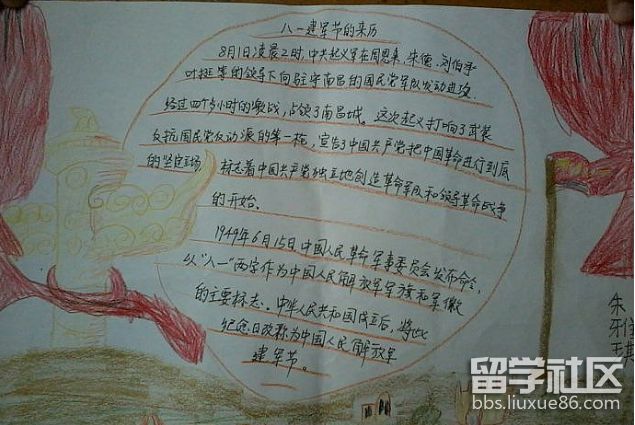 八一建军节的来历
8月1日凌晨2时,中共起义军在周恩来、朱德、刘伯承
叶挺等的领导下向驻守南昌的国民党军队发动进攻,
经过四个多小时的激战,占领了南昌城。这次起义打响了武装
反抗国民党反动派的第一枪,宣告了中国共产党把中国革命进行到底
的坚定立场,标志着中国共产党独立地创造革命军队和领导革命战争
的开始。
1949年6月15日中国人民革命军事委员会发布命令,
以"八一"两字作为中国人民解放军军旗和军徽
的主要标志。中华人民共和国成立后,将此
纪念日改称为中国人民解放军
建军节。
朱
玉琪
留学社区
bbs.liuxue86.com